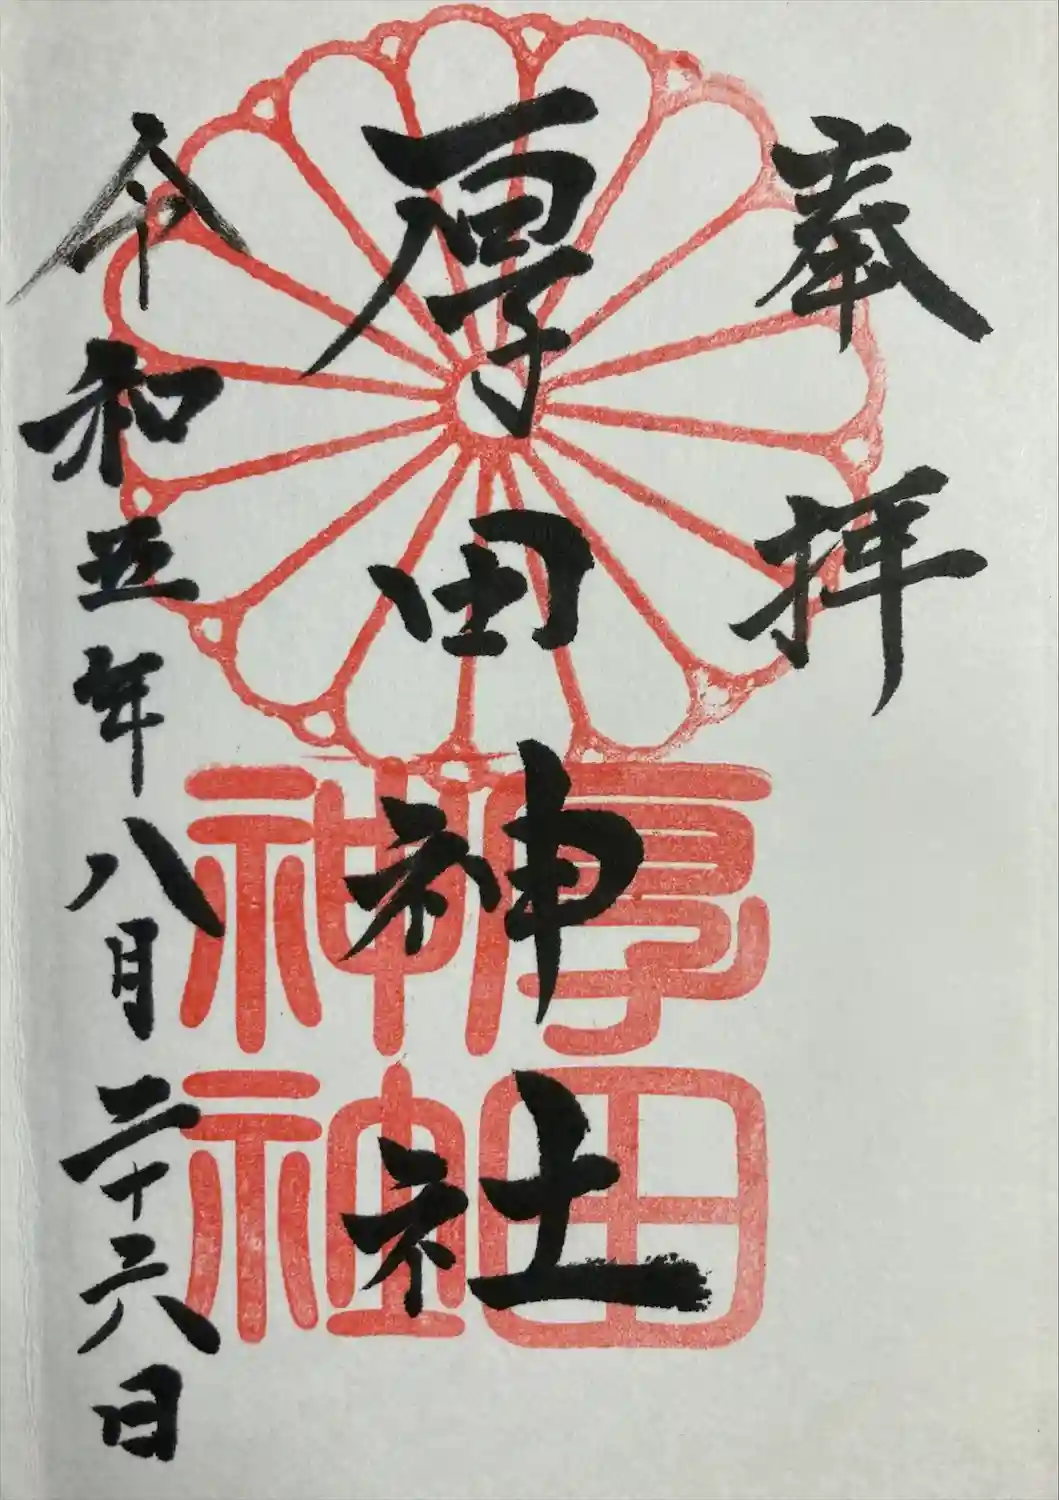 奉拝
厚田神社
厚田
神社
令和五年八月二十六日